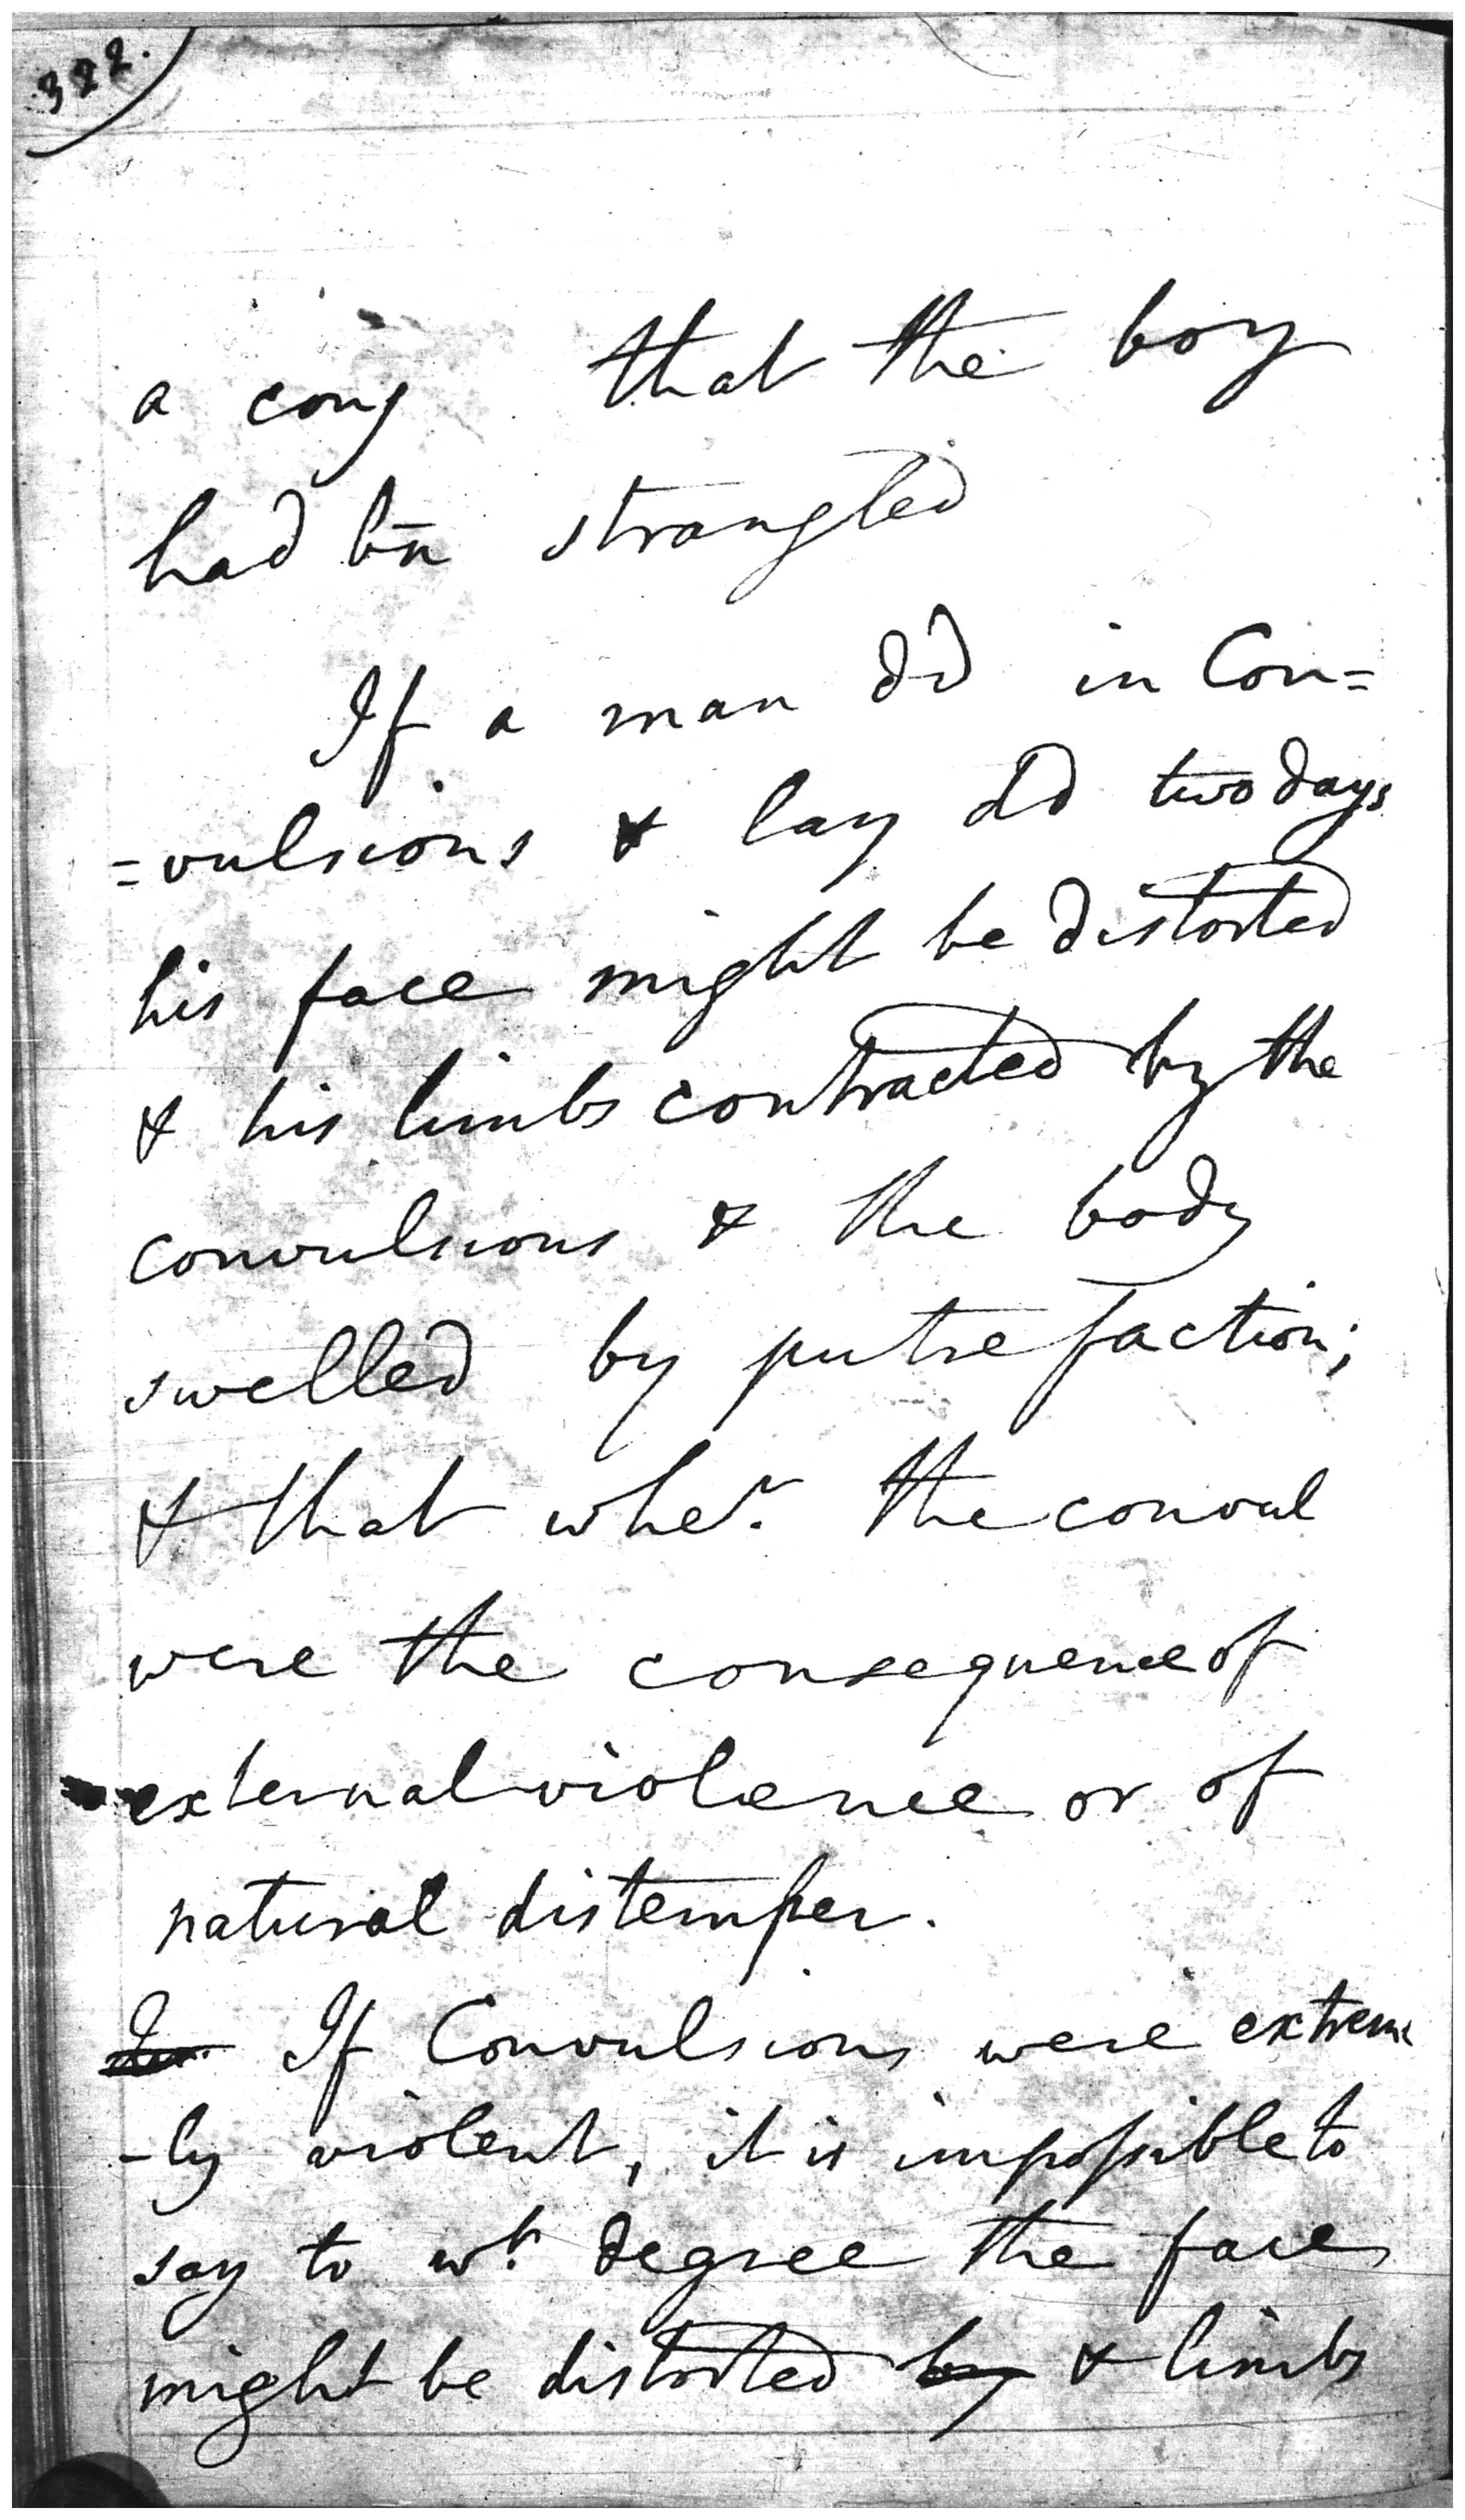 322.
a conj that the boy
had bn̄ strangled
If a man dd in Con=
=vulsions & lay dd two days
his face might be distorted
& his limbs contracted by the
convulsions & the body
swelled by putrefaction;
& that wher. the convul
were the consequence of
external violence or of
natural distemper.
If Convulsions were extreme
-ly violent, it is impossible to
say to wt. degree the face
might be distorted by & limbs